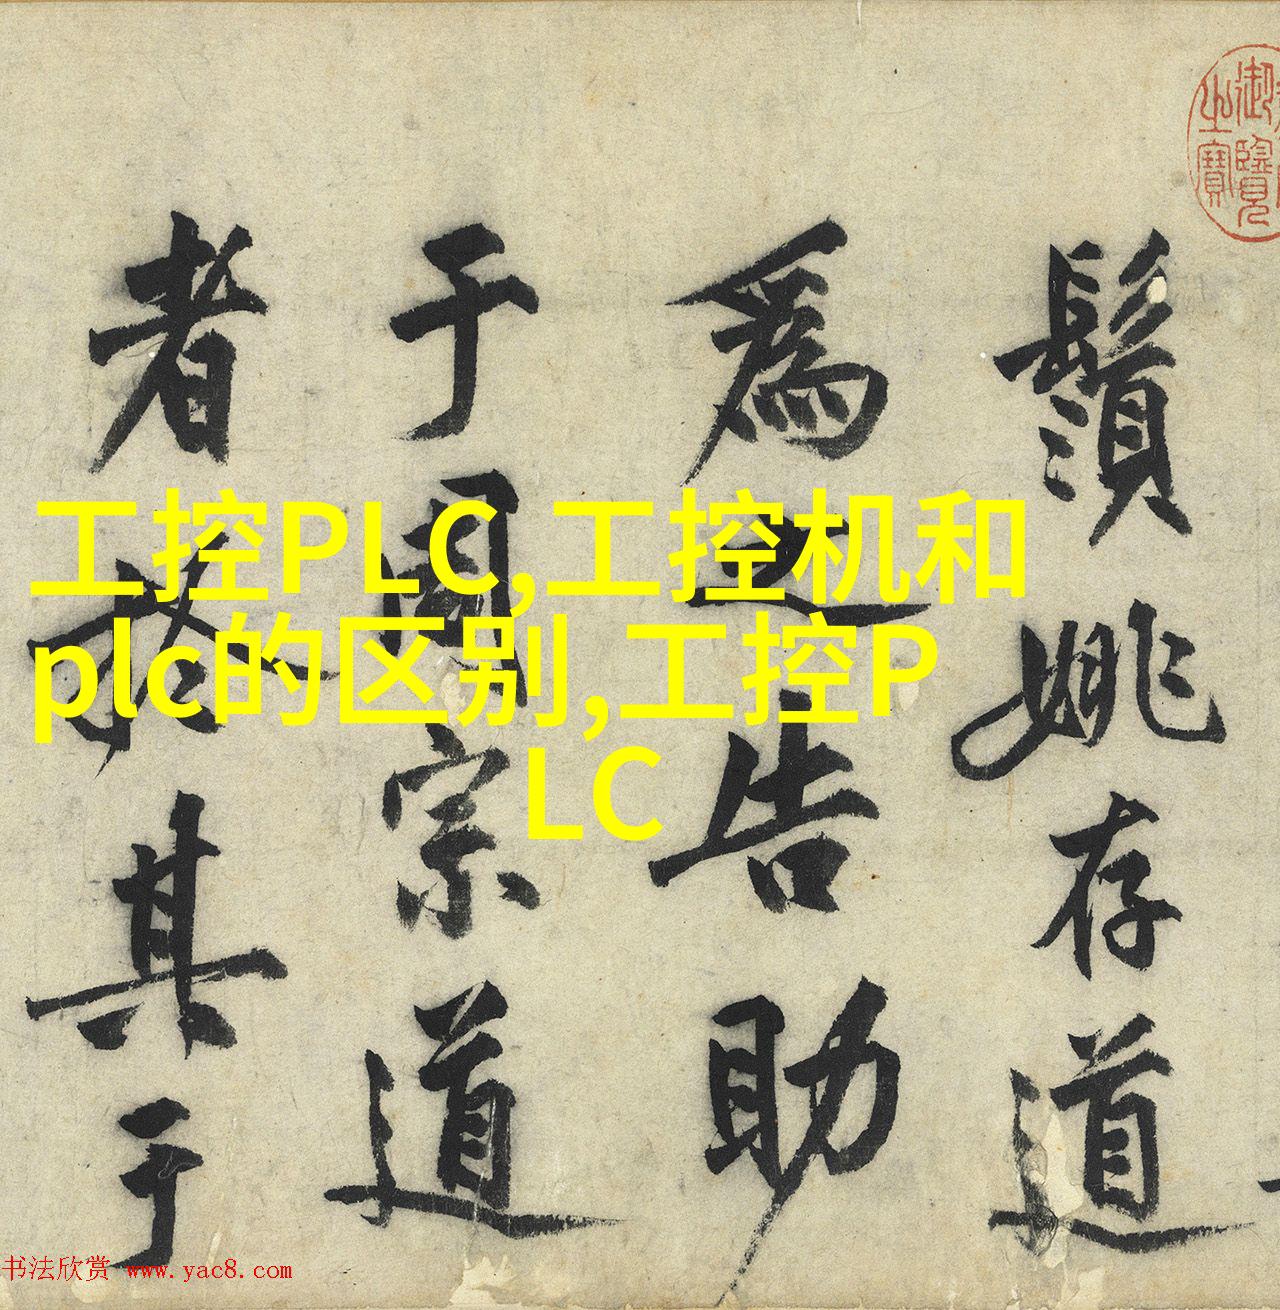 工控PLC,工控机和
plc的区别,工控P
LC
御覽
之寶
鬚姚存道
為之告助
于周宗道
者於其于
书法欣赏 www.yac8.com